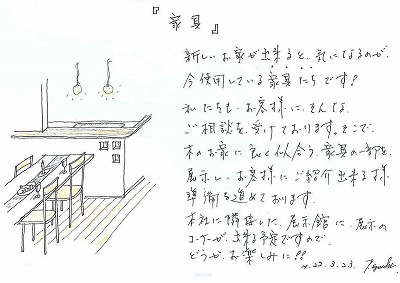 『家具』
新しいお家が出来ると、気になるのが、
今使用している家具たちです!
私たちも、お客様に、そんな、
ご相談を、受けております。そこで、
木のお家に良く似合う、家具の一部を、
展示し、お客様にご紹介出来る様、
準備を進めております。
本社に隣接した、展示館に、展示の
コーナーが出来る予定ですので、
どうぞ、お楽しみに!!
H.22.3.23.